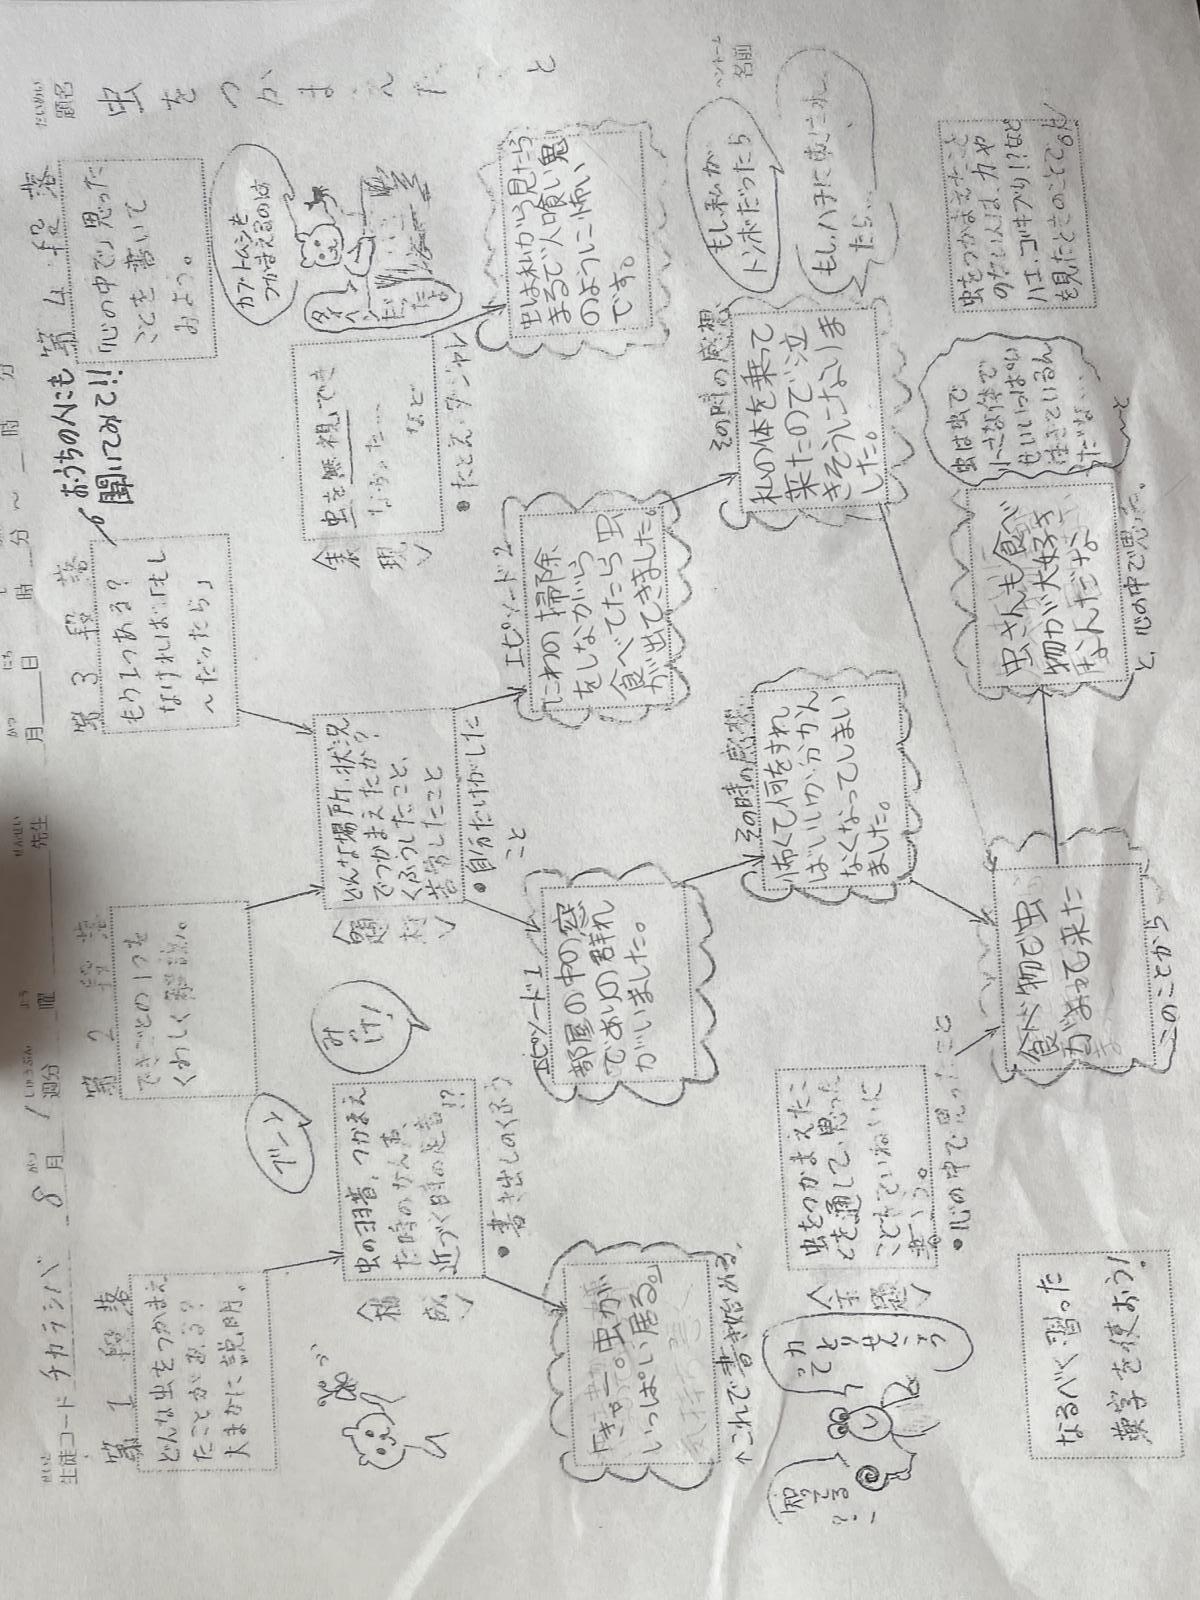 生徒コード チカラシバ
8月
1週分
曜
先生
月
日
時
分
～
時
分
題名
虫をつかまえたこと
名前
第1段落
どんな虫をつかまえ
たことがある?
大まかに説明。
第2段落
できごとの1つを
くわしく
第3段落
もう1つある?
なければ「もし
～だったら」
第4段落
「心の中で」思った
ことを書いて
みよう。
おうちの人にも
聞いてみて!!
ブーン
みーけ!
カブトムシを
つかまえるのは
タイヘン
だったよ
〈構成〉
虫の羽音、つかまえ
た時のひめい、
近づく時の足音!?
●書き出しのくふう
〈題材〉
どんな場所、状況
でつかまえたか?
くふうしたこと、
苦労したこと
●自分だけがした
こと
〈表現〉
虫を無視でき
なかった…
など
●たとえ・ダジャレ
「きゃー。虫が
いっぱい居る。」
↑これで書き始める。
エピソード1
部屋の中の窓
でありの群れ
がいました。
エピソード2
にわの掃除
をしながら
食べてたら虫
が出てきました。
虫は私から見たら
まるで人喰い鬼
のように怖い
です。
その時の感想
怖くて何をすれ
ばいいか分かん
なくなってしまい
ました。
その時の感想
私の体を乗って
来たので泣
きそうになりま
した。
もし私が
トンボだったら
もしハチに
たら、
知ってる?
〈主題〉
虫をつかまえたこ
とを通して、思った
ことをていねいに
書こう。
●心の中で思ったこと
食べ物で虫
がよって来た
このことから
虫さんも食べ
物が大好き
なんだな
と、心の中で思った。
虫は虫で
小さな体で
せいいっぱい
生きているん
だな…
と
虫をつかまえたこと
のない人は、力や
ハエ、ゴキブリ!?など
を見たときのことでOK
なるべく習った
漢字を使おう!